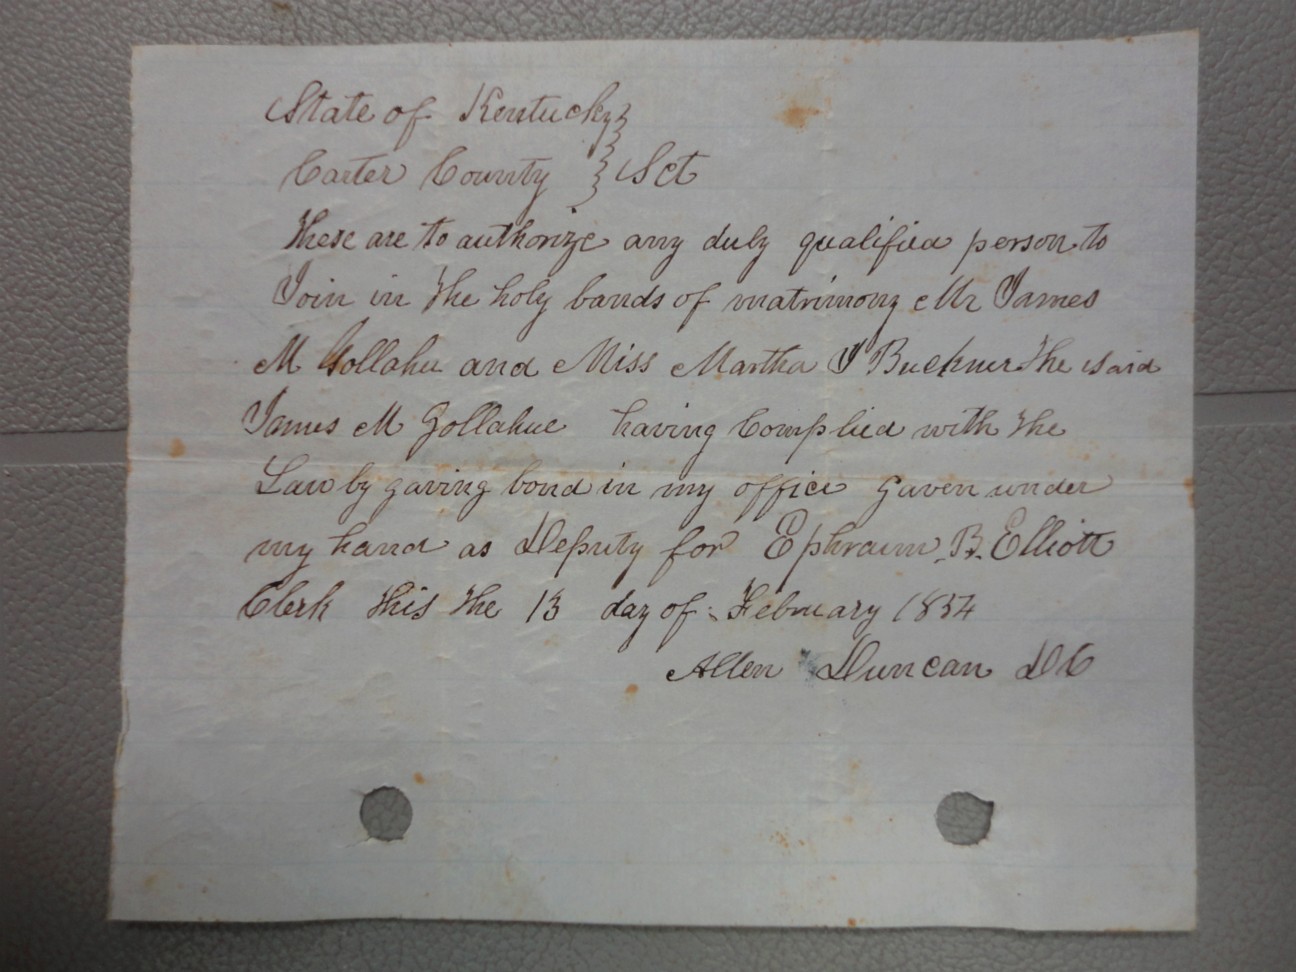 State of Kentucky }
Carter County } Sct
These are to authorize any duly qualified person to
Join in the holy bands of matrimony Mr James
M Gollahu and Miss Martha J Buckner the said
James M Gollahue having Complied with the
Law by gaving bond in my office gaven under
my hand as Deputy for Ephraim B. Elliott
Clerk this the 13 day of February 1854
Allen Duncan DC